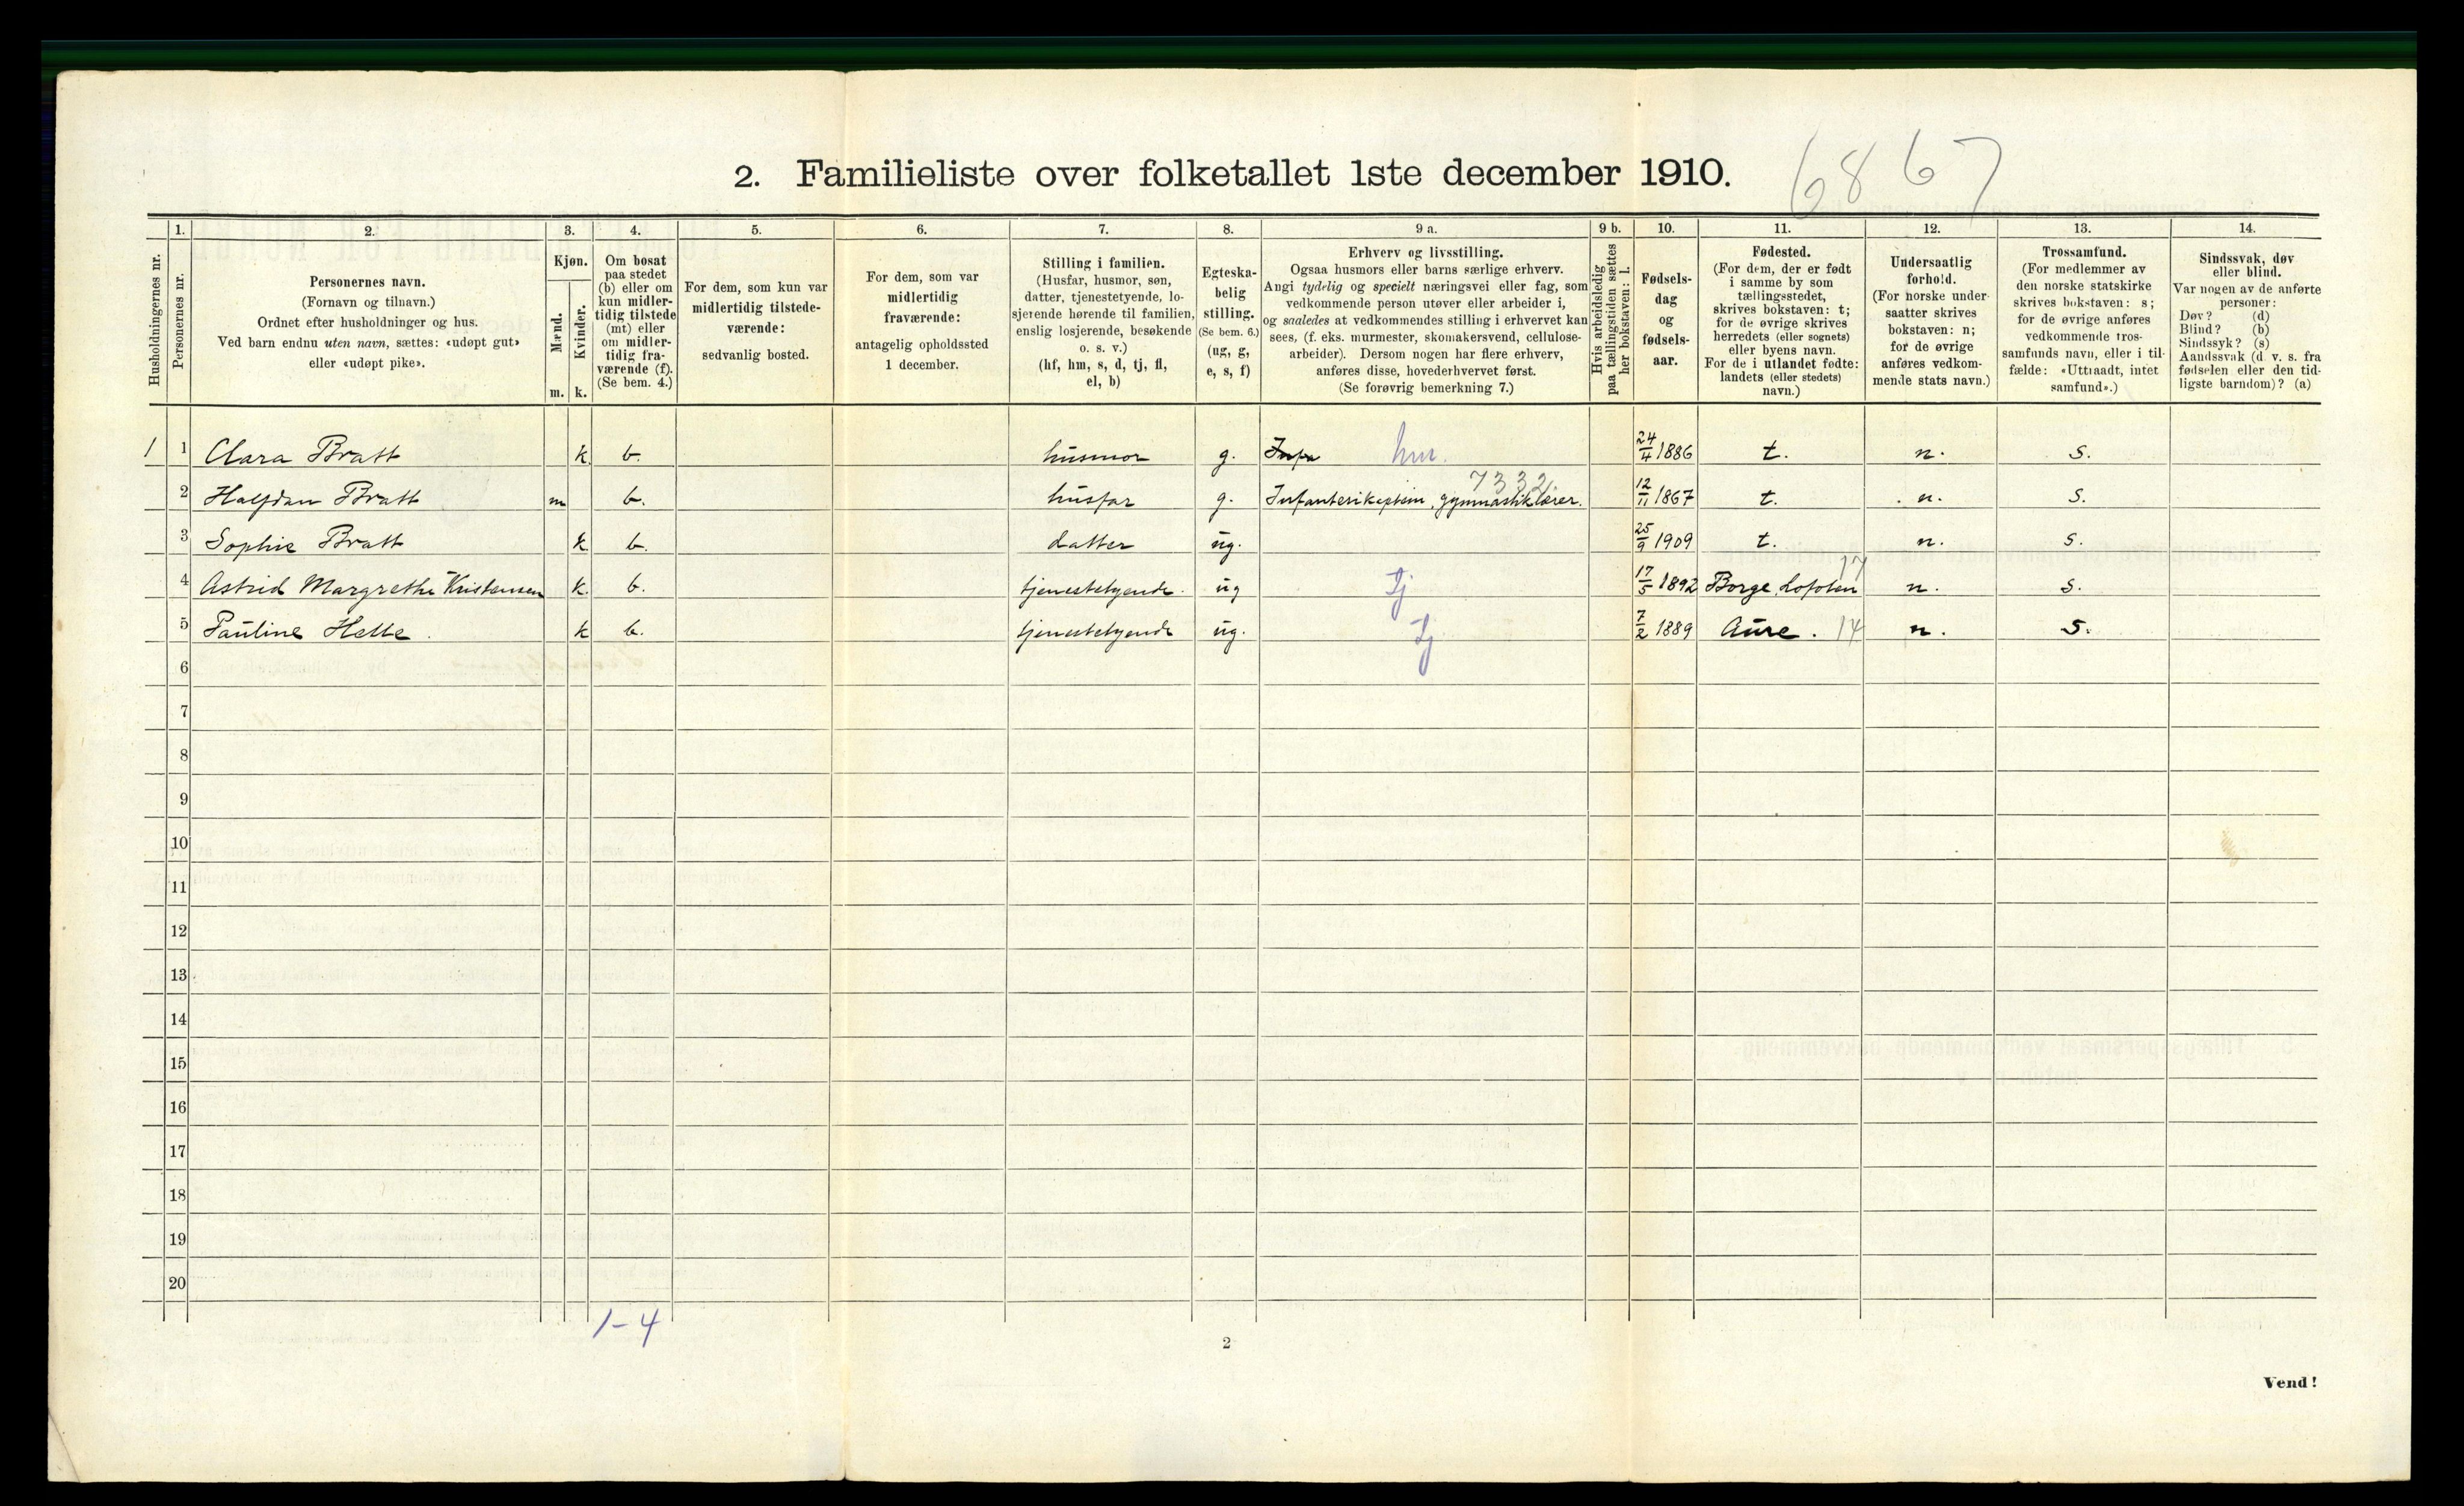 2. Familieliste over folketallet 1ste december 1910.
6867
Husholdningernes nr.
1.
Personernes nr.
2.
Personernes navn.
(Fornavn og tilnavn.)
Ordnet efter husholdninger og hus.
Ved barn endnu uten navn, sættes: «udøpt gut»
eller «udøpt pike».
3.
Kjøn.
Mænd.
m.
Kvinder.
k.
4.
Om bosat
paa stedet
(b) eller om
kun midler-
tidig tilstede
(mt) eller
om midler-
tidig fra-
værende (f).
(Se bem. 4.)
5.
For dem, som kun var
midlertidig tilstede-
værende:
sedvanlig bosted.
6.
For dem, som var
midlertidig
fraværende:
antagelig opholdssted
1 december.
7.
Stilling i familien.
(Husfar, husmor, søn,
datter, tjenestetyende, lo-
sjerende hørende til familien,
enslig losjerende, besøkende
o. s. v.)
(hf, hm, s, d, tj, fl,
el, b)
8.
Egteska-
belig
stilling.
(Se bem. 6.)
(ug, g,
e, s, f)
9 a.
Erhverv og livsstilling.
Ogsaa husmors eller barns særlige erhverv.
Angi tydelig og specielt næringsvei eller fag, som
vedkommende person utøver eller arbeider i,
og saaledes at vedkommendes stilling i erhvervet kan
sees, (f. eks. murmester, skomakersvend, cellulose-
arbeider). Dersom nogen har flere erhverv,
anføres disse, hovederhvervet først.
(Se forøvrig bemerkning 7.)
9 b.
Hvis arbeidsledig
paa tællingstiden sættes
her bokstaven: l.
10.
Fødsels-
dag
og
fødsels-
aar.
11.
Fødested.
(For dem, der er født
i samme by som
tællingsstedet,
skrives bokstaven: t;
for de øvrige skrives
herredets (eller sognets)
eller byens navn.
For de i utlandet fødte:
landets (eller stedets)
navn.)
12.
Undersaatlig
forhold.
(For norske under-
saatter skrives
bokstaven: n;
for de øvrige
anføres vedkom-
mende stats navn.)
13.
Trossamfund.
(For medlemmer av
den norske statskirke
skrives bokstaven: s;
for de øvrige anføres
vedkommende tros-
samfunds navn, eller i til-
fælde: «Uttraadt, intet
samfund».)
14.
Sindssvak, døv
eller blind.
Var nogen av de anførte
personer:
Døv? (d)
Blind? (b)
Sindssyk? (s)
Aandssvak (d. v. s. fra
fødselen eller den tid-
ligste barndom)? (a)
1 1 Clara Bratt k b. husmor g. Infa hur. 24/4 1886 t. n. s.
7332
2 Halfdan Bratt m b. husfar g. Infanterikaptein, gymnastiklærer. 12/11 1867 t. n. s.
3 Sophie Bratt k b. datter ug. 25/9 1909 t. n. s.
4 Astrid Margrethe Kristensen k. b. tjenestetyende. ug Tj 17/5 1892 Borge, Lofoten 17 n. s.
5 Pauline Helle. k b. tjenestetyende ug. Tj 7/2 1889 Aure. 14 n. s.
6
7
8
9
10
11
12
13
14
15
16
17
18
19
20
1-4
2
Vend!